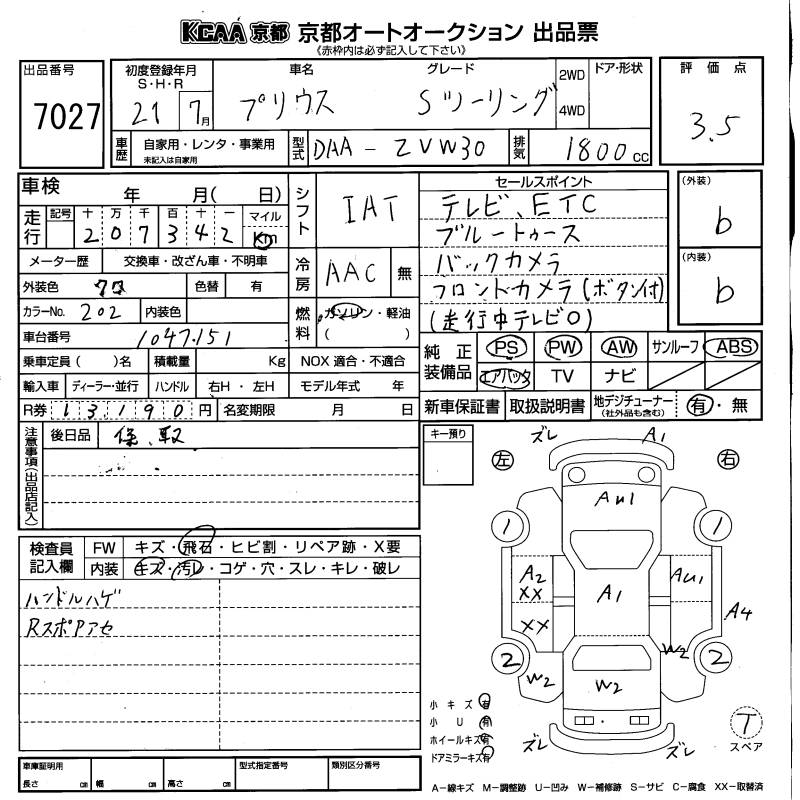 KCAA 京都 京都オートオークション 出品票
《赤枠内は必ず記入して下さい》
出品番号
7027
初度登録年月
S・H・R
21 7月
車名
プリウス
グレード
Sツーリング
2WD
4WD
ドア・形状
評価点
3.5
車歴
自家用・レンタ・事業用
未記入は自家用
型式
DAA-ZVW30
排気
1800cc
車検 年 月( 日)
走行
記号 十 万 千 百 十 一 マイル
2 0 7 3 4 2 Km
メーター歴 交換車・改ざん車・不明車
外装色 クロ 色替 有
カラーNo. 202 内装色
車台番号 1047151
乗車定員( )名 積載量 Kg
輸入車 ディーラー・並行 ハンドル 右H・左H
R券 13190円 名変期限 月 日
シフト IAT
冷房 AAC 無
燃料 ガソリン・軽油
( )
NOX 適合・不適合
モデル年式 年
セールスポイント
テレビ、ETC
ブルートゥース
バックカメラ
フロントカメラ(ボタン付)
(走行中テレビO)
(外装)
b
(内装)
b
純正装備品
PS PW AW サンルーフ ABS
エアバッグ TV ナビ
新車保証書 取扱説明書 地デジチューナー
(社外品も含む)
有・無
注意事項(出品店記入)
後日品 保、取
検査員記入欄
FW キズ・飛石・ヒビ割・リペア跡・X要
内装 キズ・汚レ・コゲ・穴・スレ・キレ・破レ
ハンドルハゲ
RスポPアセ
キー預り
左
右
ズレ A1
AU1
1 1
A2
XX
A1
AU1
XX
A4
2 2
W2
W2 W2
ズレ ズレ
小キズ 有
小U 有
ホイールキズ 有
ドアミラーキズ 有
T
スペア
車庫証明用
長さ cm 幅 cm 高さ cm
型式指定番号
類別区分番号
A-線キズ M-調整跡 U-凹み W-補修跡 S-サビ C-腐食 XX-取替済